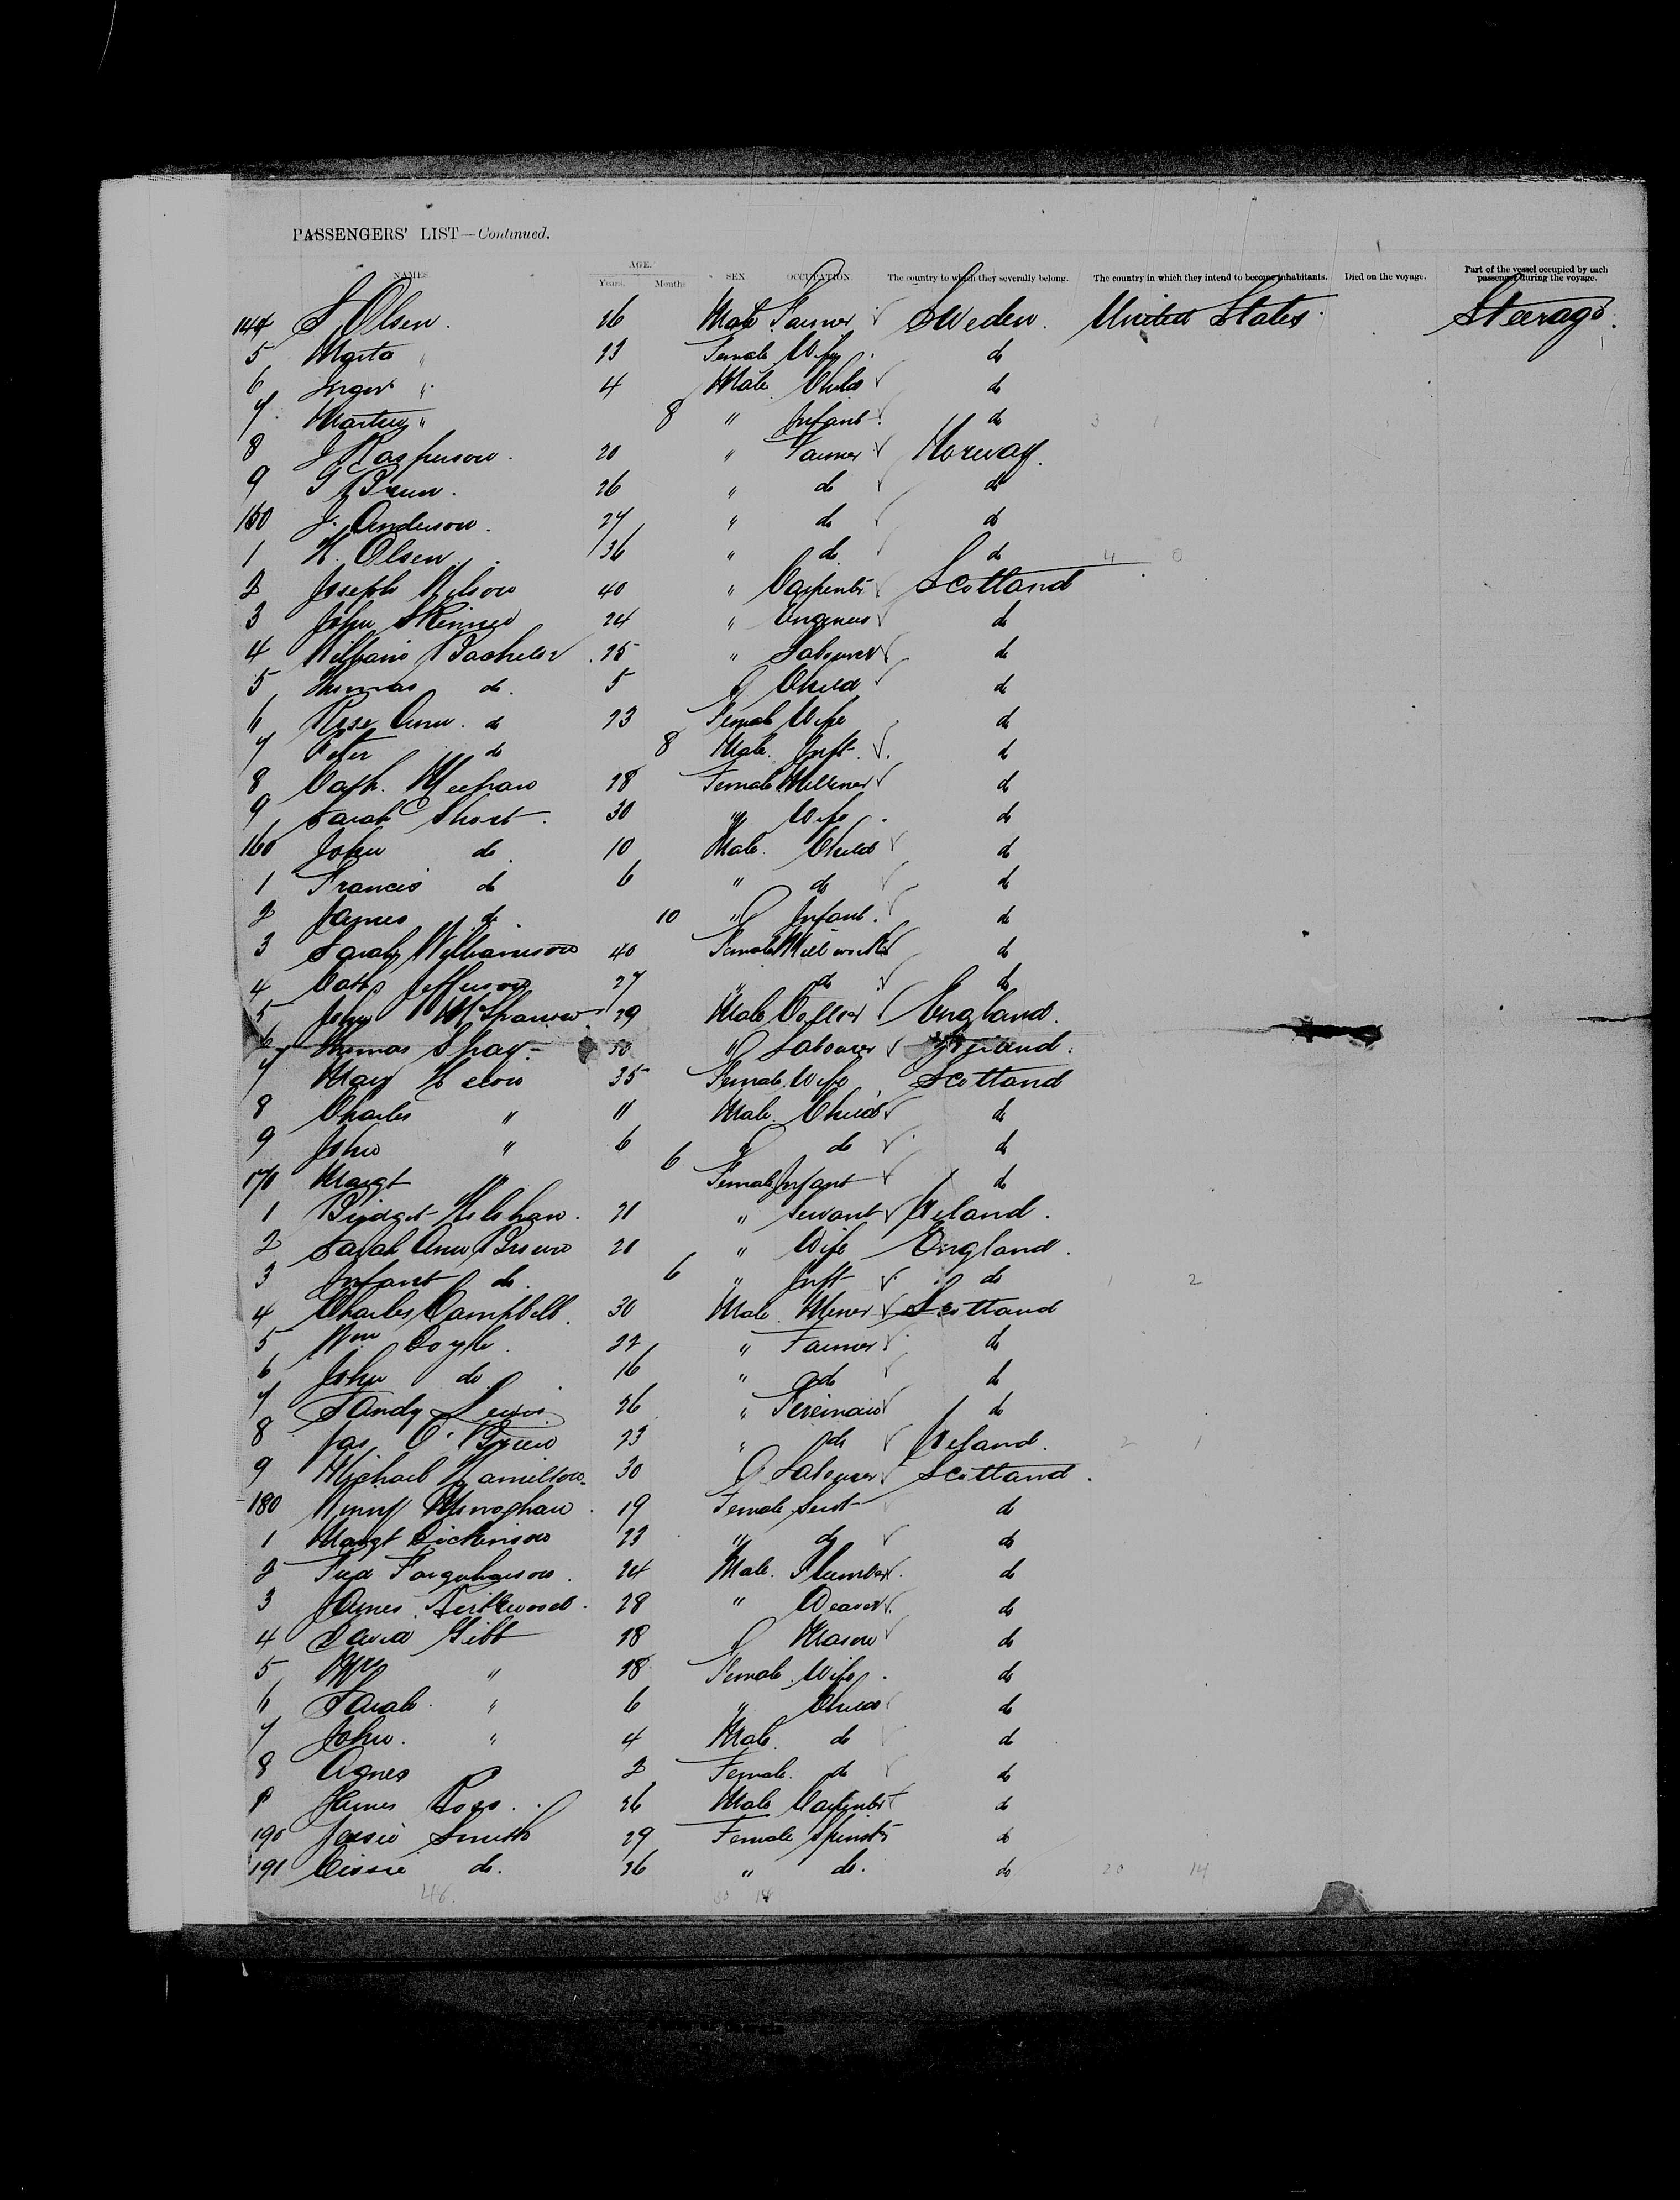 PASSENGERS' LIST—Continued.
NAMES AGE. Years. Months SEX OCCUPATION The country to which they severally belong. The country in which they intend to become inhabitants. Died on the voyage. Part of the vessel occupied by each passenger during the voyage.
144 S Olsen. 26 Male Farmer Sweden. United States. Steerage.
5 Marta " 23 Female Wife do
6 Inger " 4 Male Child do
7 " 8 " Infant do 3 1
8 J Kasperson. 20 " Farmer Norway.
9 26 " do do
150 J. Anderson. 27 " do do
1 H. Olsen. 36 " do do 4 0
2 Joseph Wilson 40 " Carpenter Scotland
3 John Skinner 24 " Engineer do
4 William Bachelor 25 " Labourer do
5 Thomas do. 5 " Child do
6 Rose Ann. do 23 Female Wife do
7 Peter do 8 Male. Inft. do
8 Cath. Meehan 28 Female Milliner do
9 Sarah Short. 30 " Wife do
160 John do. 10 Male. Child do
1 Francis do 6 " do do
2 James do. 10 " Infant. do
3 Sarah Williamson 40 Female Millworker do
4 Cath Jefferson 27 " do do
5 John 29 Male Collier England.
6 Thomas Shay. 30 " Labourer Ireland.
7 Mary 35 Female. Wife Scotland
8 Charles " 11 Male. Child do
9 John " 6 " do do
170 Margt " 6 Female Infant do
1 Bridget 21 " Servant Ireland.
2 Sarah Ann Brown 20 " Wife England.
3 Infant do. 6 " Inft do 1 2
4 Charles Campbell. 30 Male. Miner Scotland
5 Wm Doyle. 22 " Farmer do
6 John do. 16 " do do
7 Sandy Lewis 26 " Fireman do
8 Jas. O'Brien 23 " do Ireland. 2 1
9 Michael Hamilton. 30 " Labourer Scotland.
180 Winny Monaghan 19 Female Servt do
1 Margt Dickinson 23 " do do
2 Farquharson. 24 Male. Plumber. do
3 James Kirkwood. 28 " Weaver. do
4 David Gibb 28 " Mason do
5 " 28 Female. Wife. do
6 Sarah. " 6 " Child do
7 John. " 4 Male. do do
8 Agnes " 2 Female. do do
9 James Ross. 26 Male Carpenter do
190 Jessie Smith 29 Female Spinstr do
191 Cissie do. 26 " do. do 20 14
46. 30 14